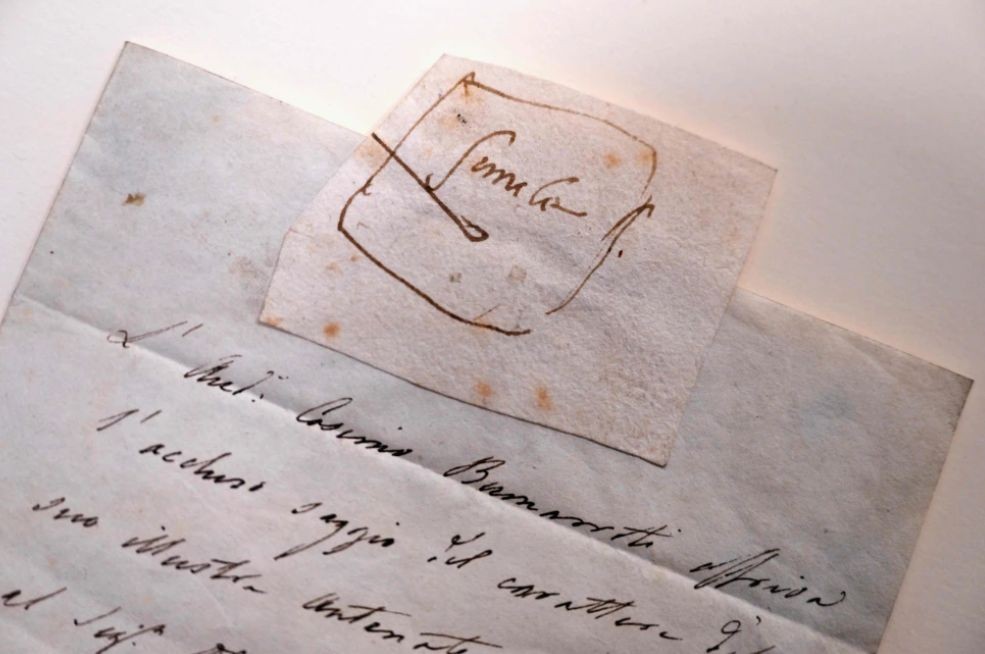 simile
L' Cosimo Buonarroti offriva
l'accluso saggio del carattere
suo illustre antenato
al Sig.